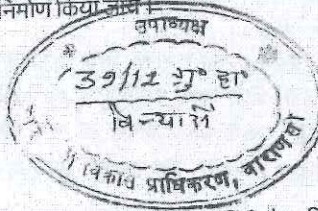 निर्माण किया जाये ।
उपाध्यक्ष
39/12 गृ० हा०
विन्यास
विकास प्राधिकरण, वाराणसी